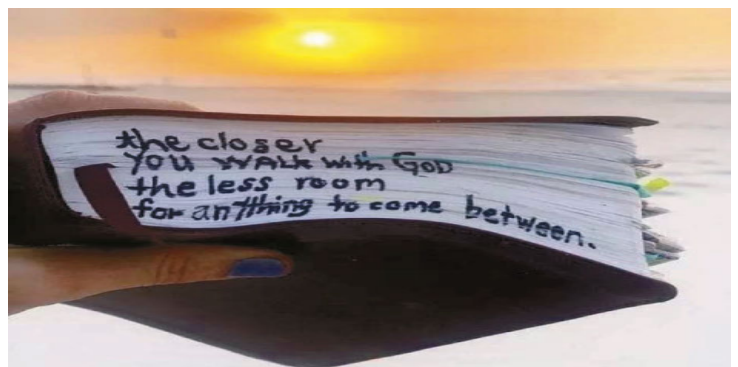 the closer
YOU WALK with GOD
the less room
for anything to come between.